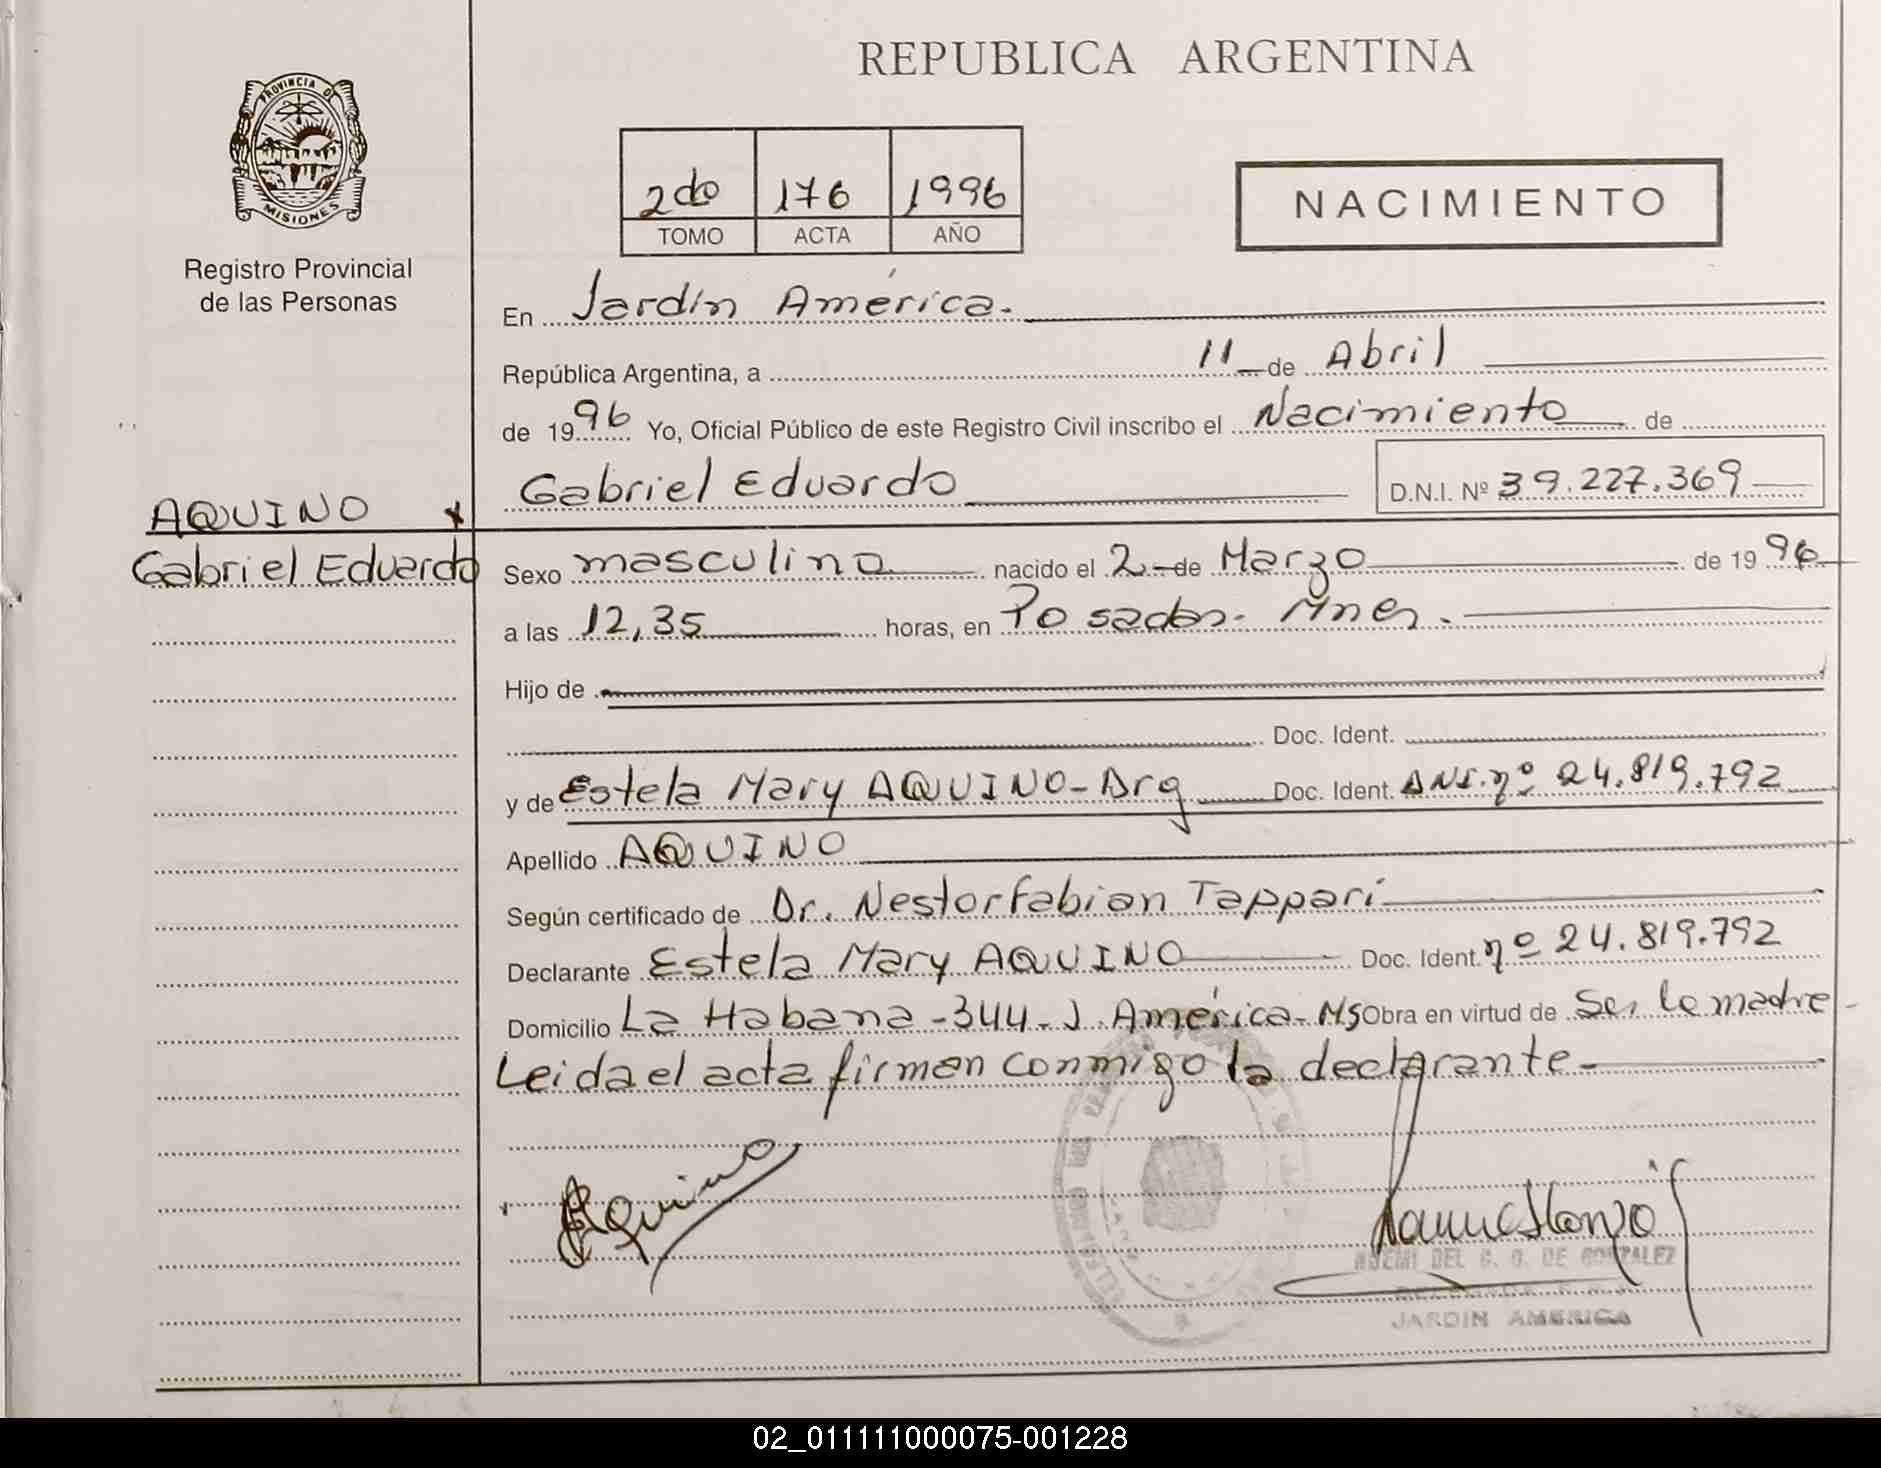 REPUBLICA ARGENTINA
PROVINCIA DE
MISIONES
Registro Provincial
de las Personas
2do 176 1996
TOMO ACTA AÑO
NACIMIENTO
En Jardín América.
República Argentina, a 11 de Abril
de 1996 Yo, Oficial Público de este Registro Civil inscribo el Nacimiento de
Gabriel Eduardo D.N.I. Nº 39.227.369
AQUINO
Gabriel Eduardo
Sexo masculino nacido el 2 de Marzo de 1996
a las 12,35 horas, en Posadas - Mnes.
Hijo de
Doc. Ident.
y de Estela Mary AQUINO - Arg Doc. Ident. DNI. nº 24.819.792
Apellido AQUINO
Según certificado de Dr. Nestor Fabian Tappari
Declarante Estela Mary AQUINO Doc. Ident. nº 24.819.792
Domicilio La Habana - 344 - J. América - Ms Obra en virtud de Ser la madre
Leida el acta firman conmigo la declarante -
Aquino
NOEMI DEL C. G. DE GONZALEZ
JARDIN AMERICA
02_011111000075-001228